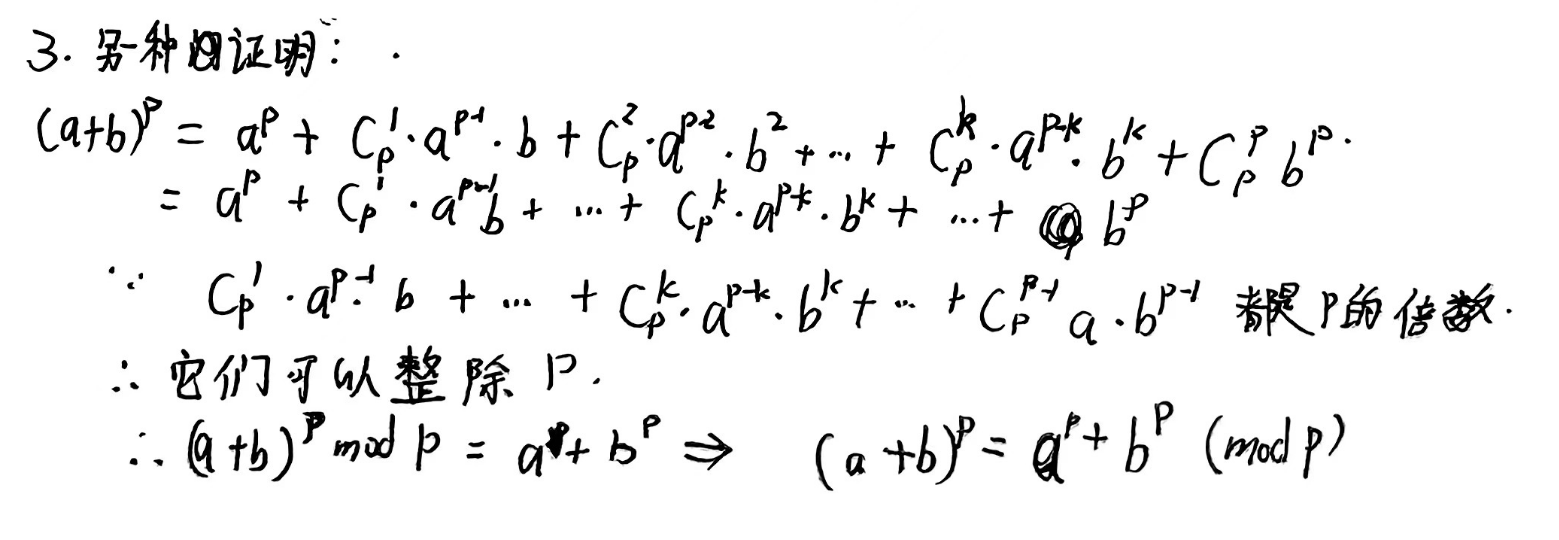 3. 另一种的证明:
(a+b)^p = a^p + C_p^1·a^{p-1}·b + C_p^2·a^{p-2}·b^2 + … + C_p^k·a^{p-k}·b^k + C_p^p b^p.
= a^p + C_p^1·a^{p-1}b + … + C_p^k·a^{p-k}·b^k + … + b^p
∵ C_p^1·a^{p-1}·b + … + C_p^k·a^{p-k}·b^k + … + C_p^{p-1} a·b^{p-1} 都是 p的倍数.
∴ 它们可以整除 p.
∴ (a+b)^p mod p = a^p + b^p ⇒ (a+b)^p = a^p + b^p (mod p)